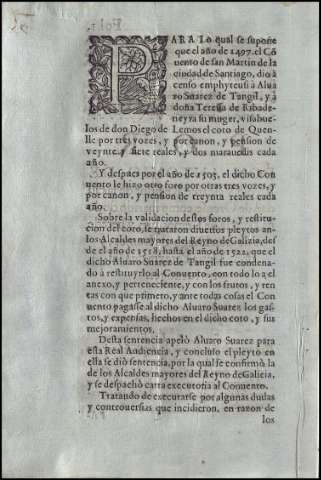 Fol. 1.
PARA Lo qual se supone
que el año de 1497. el Cõ
uento de san Martin de la
ciudad de Santiago, dio à
censo emphyteusi à Alua
ro Suarez de Tangil, y à
doña Teresa de Ribade-
neyra su muger, visabue
los de don Diego de Lemos el coto de Quen-
lle por tres vozes, y por canon, y pension de
veynte y siete reales, y dos marauedis cada
año.
Y despues por el año de 1503. el dicho Con
uento le hizo otro foro por otras tres vozes, y
por canon, y pension de treynta reales cada
año.
Sobre la validacion destos foros, y restitu
cion del coto, se trataron diuersos pleytos an-
los Alcaldes mayores del Reyno de Galizia, des
de el año de 1518. hasta el año de 1522. que el
dicho Aluaro Suarez de Tangil fue condena-
do à restituyrlo al Conuento, con todo lo a el
anexo, y perteneciente, y con los frutos, y ren
tas con que primero, y ante todas cosas el Con
uento pagasse al dicho Aluaro Suarez los gas-
tos, y expensas, hechos en el dicho coto, y sus
mejoramientos.
Desta sentencia apelò Aluaro Suarez para
esta Real Audiencia, y concluso el pleyto en
ella se diò sentencia, por la qual se confirmò la
de los Alcaldes mayores del Reyno de Galicia,
y se despachò carta executoria al Conuento.
Tratando de executarse por algunas dudas
y controuersias que incidieron, en razon de
los